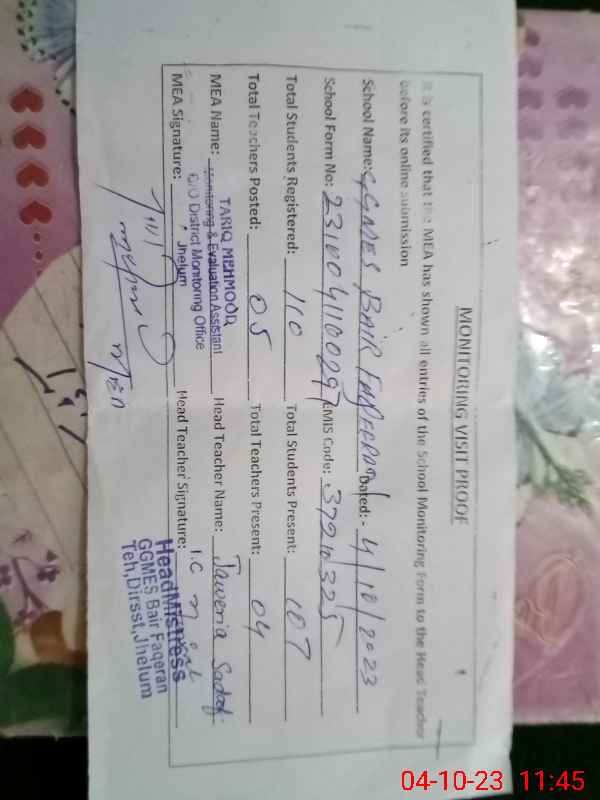 MONITORING VISIT PROOF
It is certified that the MEA has shown all entries of the School Monitoring Form to the Head Teacher
before its online submission
School Name: GGMES BAIR FAQEERAN Dated:- 4/10/2023
School Form No: 231004100297 EMIS Code: 37210325
Total Students Registered: 110 Total Students Present: 107
Total Teachers Posted: 05 Total Teachers Present: 04
TARIQ MEHMOOD
MEA Name: Monitoring & Evaluation Assistant Head Teacher Name: Jaweria Sadaf
O/O District Monitoring Office
Jhelum
MEA Signature: Head Teacher Signature: I.C
HeadMistress
GGMES Bair Faqeran
Teh,Dirsst,Jhelum
MEA
04-10-23 11:45